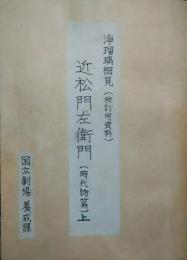 浄瑠璃細見（検討用資料）
近松門左衛門（時代物篇）上
国立劇場 養成課